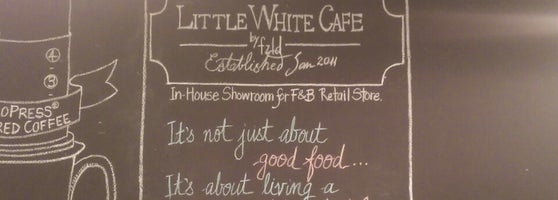 LITTLE WHITE CAFE
by fzld
Established Jan 2011
In-House Showroom for F&B Retail Store.
It's not just about
good food...
It's about living a
4
3
OPRESS®
RED COFFEE